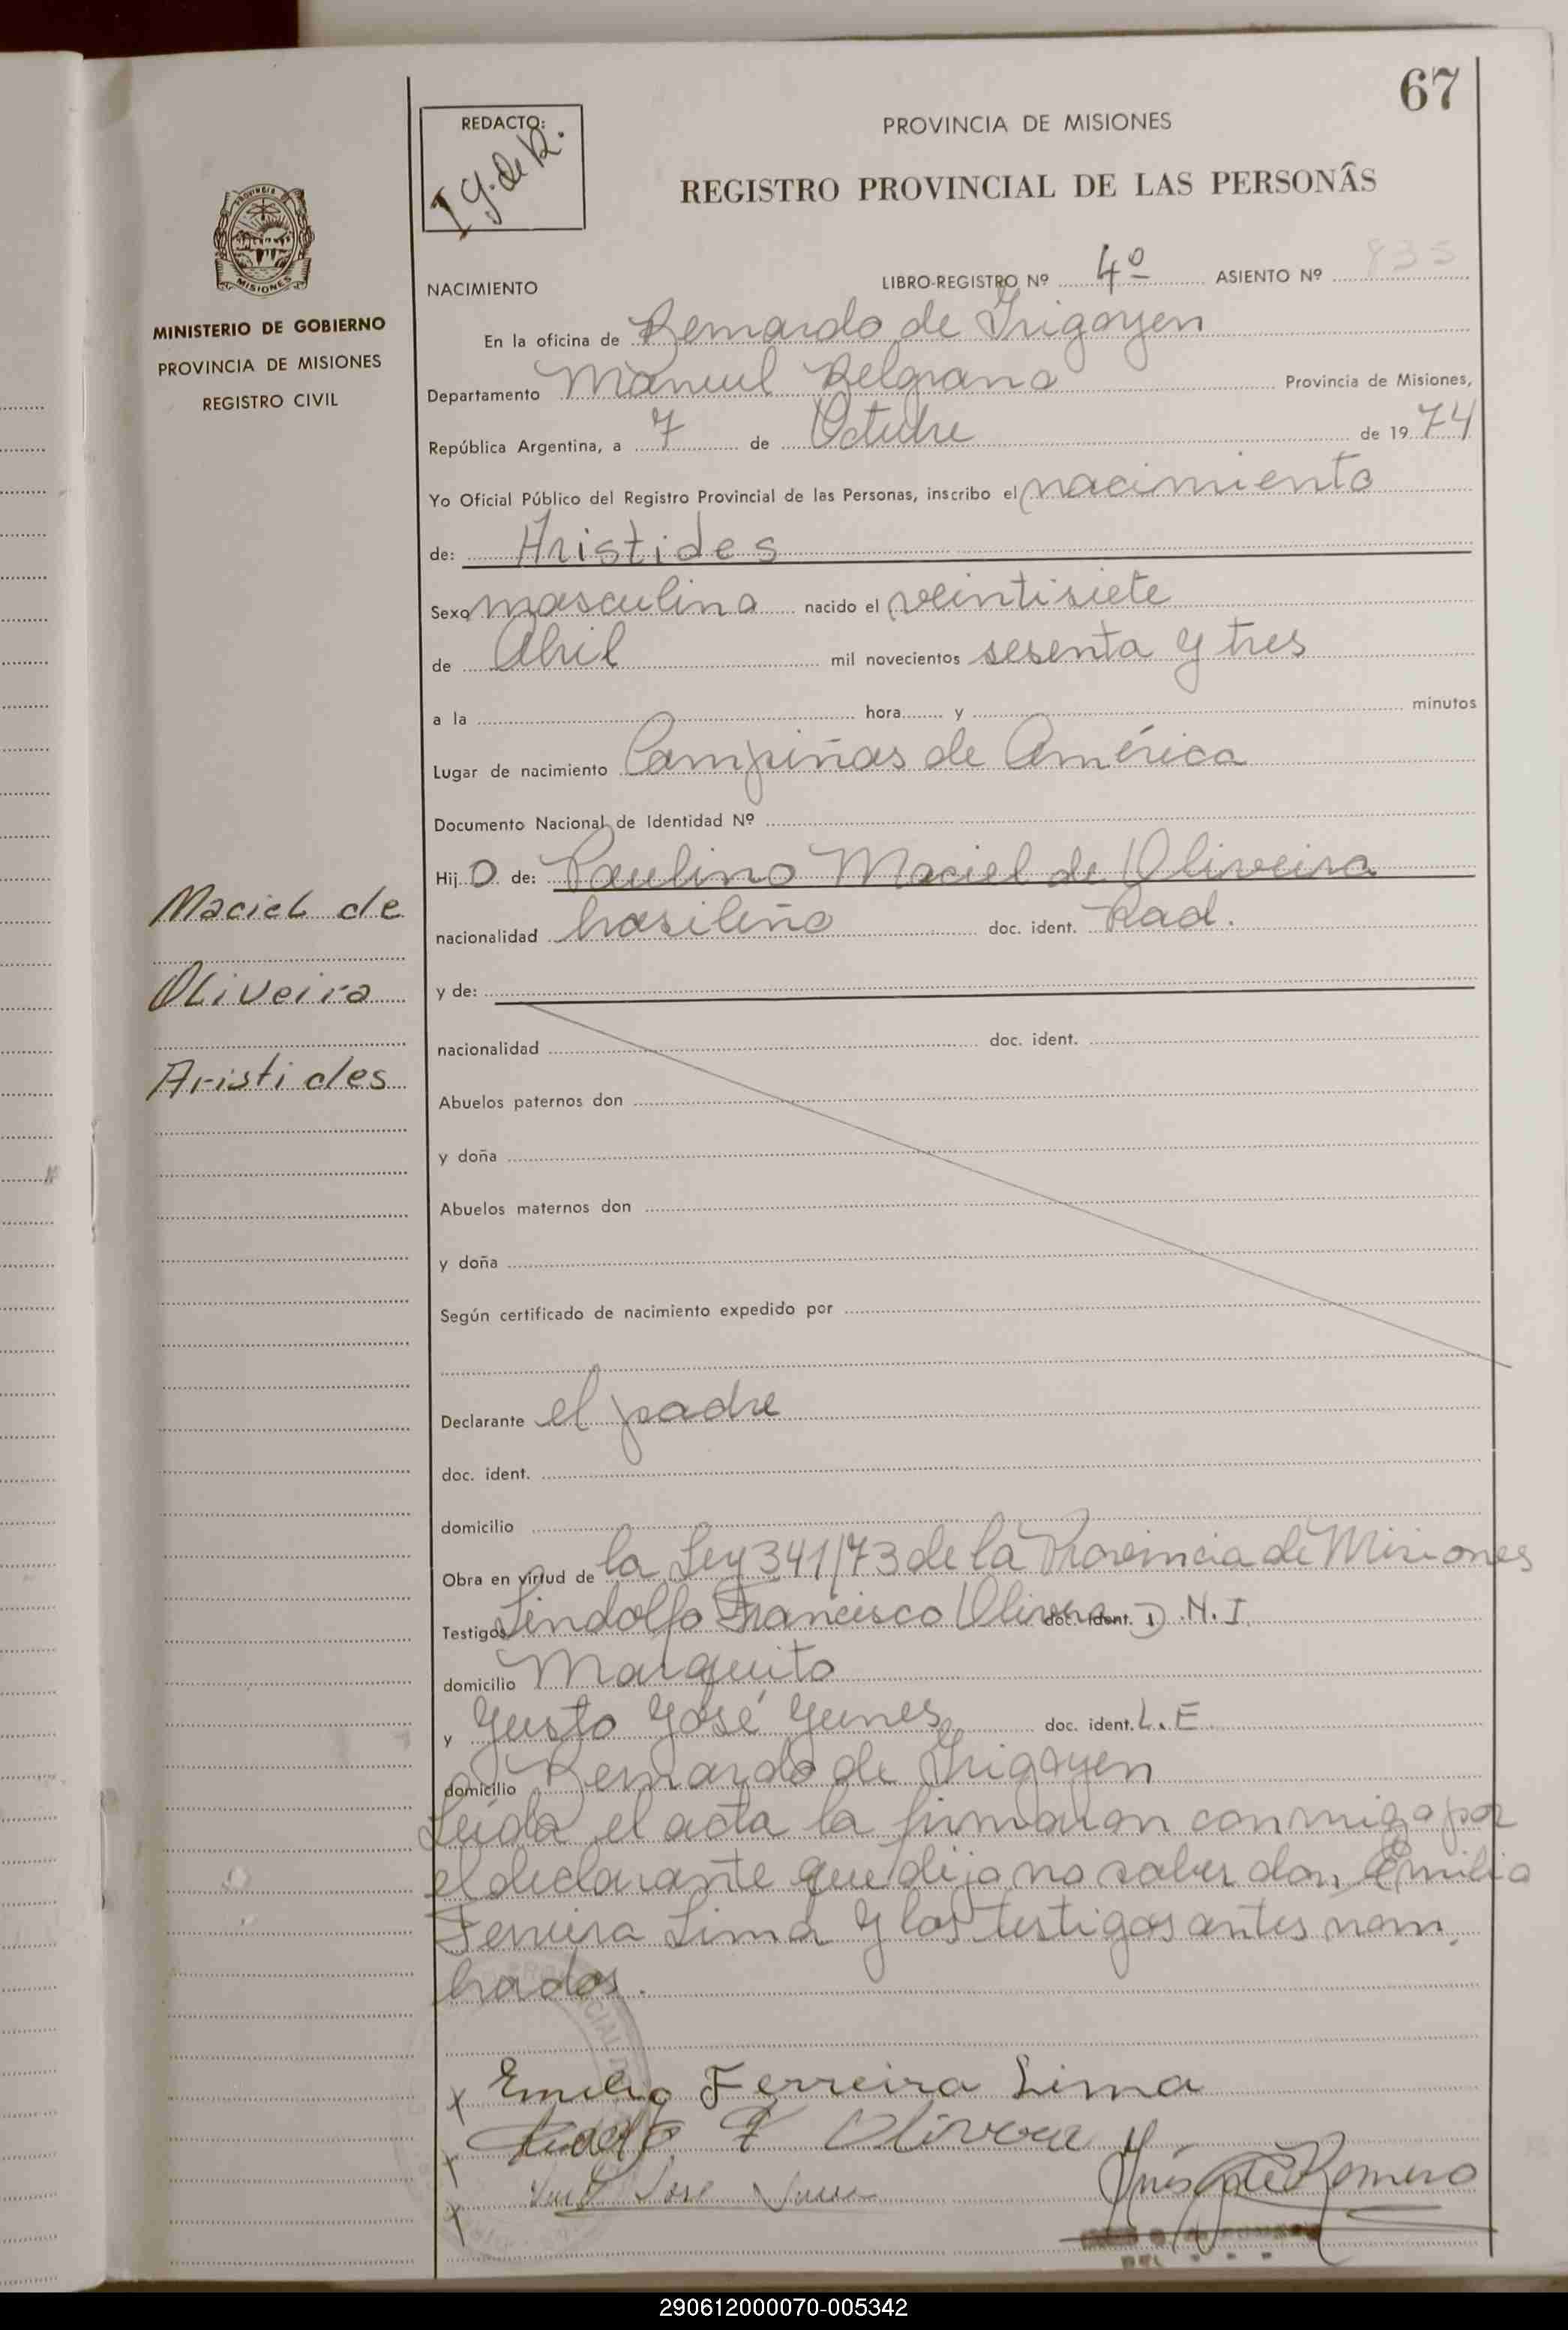 67
REDACTO:
I y. de R.
PROVINCIA DE MISIONES
REGISTRO PROVINCIAL DE LAS PERSONAS
PROVINCIA DE
MISIONES
MINISTERIO DE GOBIERNO
PROVINCIA DE MISIONES
REGISTRO CIVIL
NACIMIENTO LIBRO-REGISTRO Nº 4º ASIENTO Nº 835
En la oficina de Bernardo de Irigoyen
Departamento Manuel Belgrano Provincia de Misiones,
República Argentina, a 7 de Octubre de 1974
Yo Oficial Público del Registro Provincial de las Personas, inscribo el nacimiento
de: Aristides
Sexo masculino nacido el veintisiete
de Abril mil novecientos sesenta y tres
a la hora y minutos
Lugar de nacimiento Campiñas de América
Documento Nacional de Identidad Nº
Hijo de: Paulino Maciel de Oliveira
nacionalidad brasileño doc. ident. Rad.
y de:
Maciel de
Oliveira
Aristides
nacionalidad doc. ident.
Abuelos paternos don
y doña
Abuelos maternos don
y doña
Según certificado de nacimiento expedido por
Declarante el padre
doc. ident.
domicilio
Obra en virtud de la Ley 341/73 de la Provincia de Misiones
Testigos Lindolfo Francisco Olivera doc. ident. D.N.I.
domicilio Marquito
y Gusto José Yunes doc. ident. L.E.
domicilio Bernardo de Irigoyen
Leída el acta la firmaron conmigo por
el declarante que dijo no saber don Emilio
Ferreira Lima y los testigos antes nom
brados.
x Emilio Ferreira Lima
x F Olivera
x José
Inés de Romero
290612000070-005342